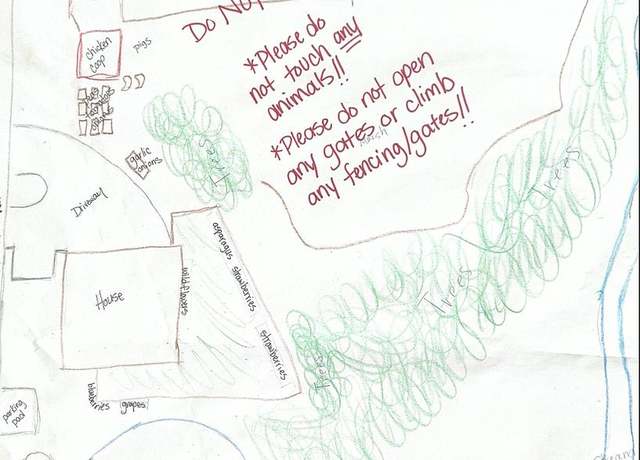 Do NOT
*Please do
not touch any
animals!!
*Please do not open
any gates or climb
any fencing/gates!!
chicken
coop
pigs
garlic
onions
Trees
Driveway
House
wildflowers
asparagus
strawberries
strawberries
blueberries
grapes
parking
pad
Trees
Trees
Trees
Stream